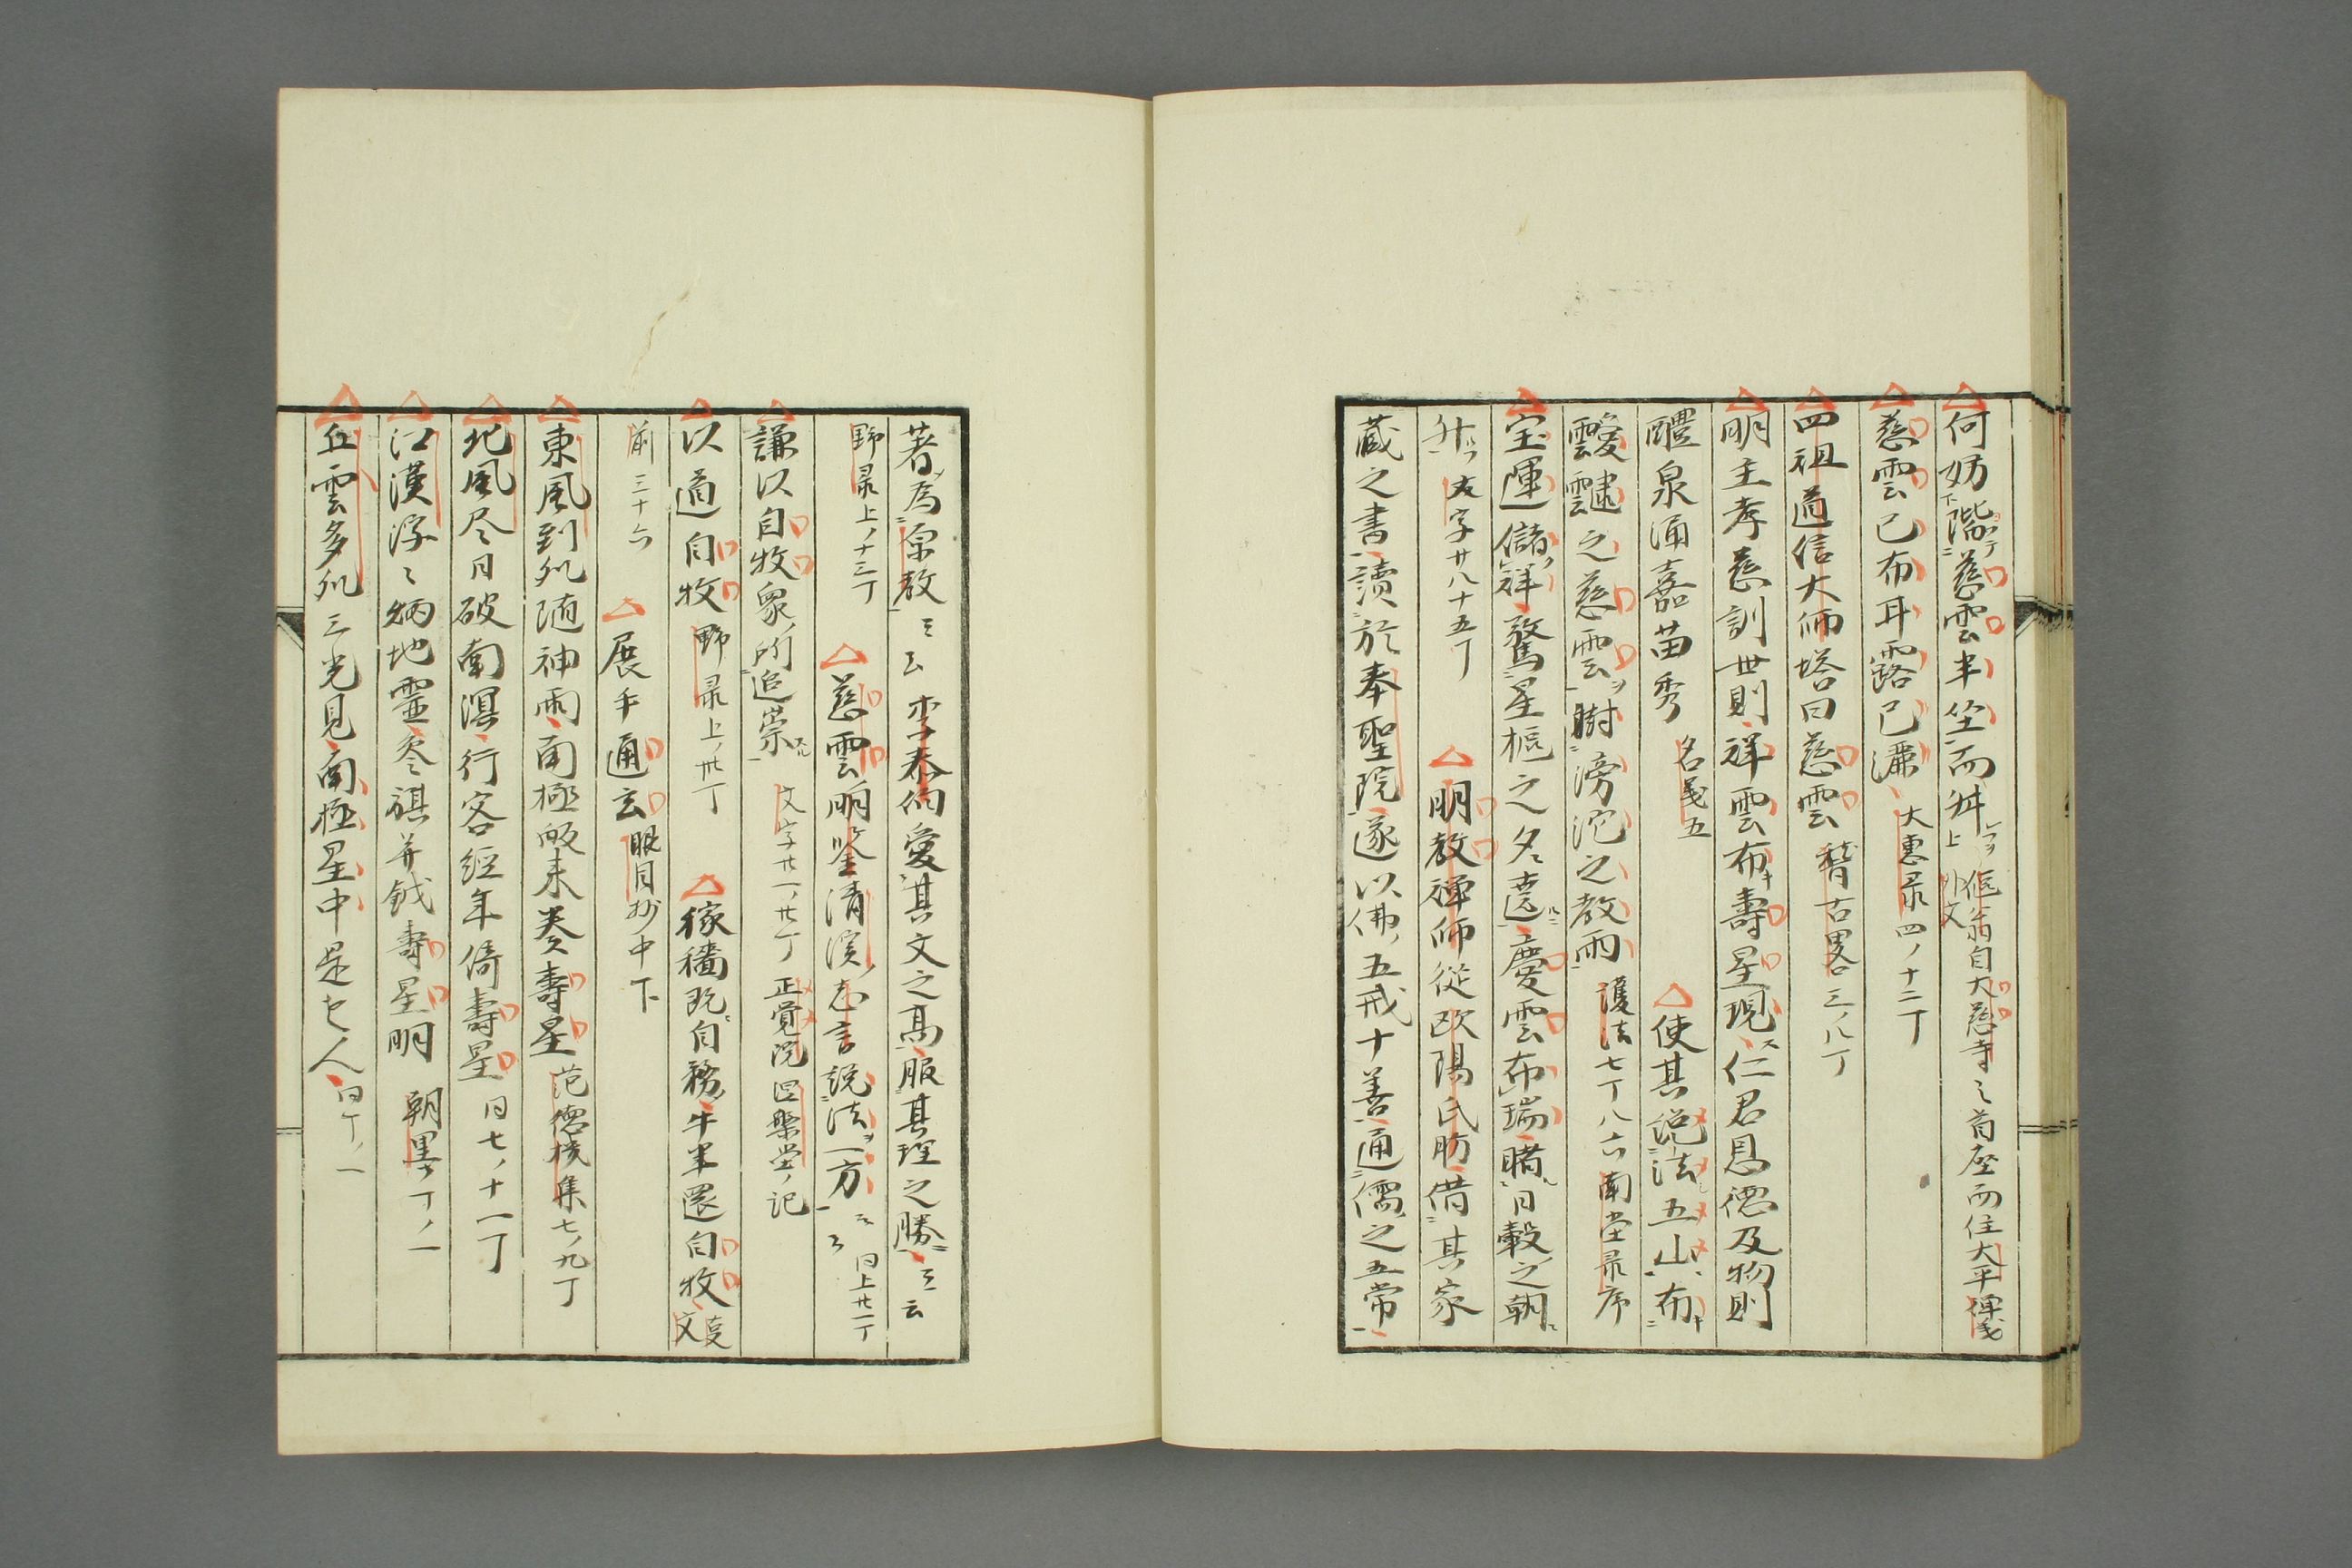 何妨階慈雲半坐而舛 傴翁自大慈寺之首座而住大平禅
慈雲已布耳露已灑 大惠录四ノ十二丁
四祖道信大師塔曰慈雲 稽古畧三ノ八丁
明主孝慈訓世則祥雲布壽星現仁君恩德及物則
醴泉涌嘉苗秀 名義五 使其説法五山布
靉靆之慈雲澍滂沱之教雨 護法七丁八六南堂录序
宝運儲祥鶩星樞之夕遶慶雲布瑞瞎日轂之朝
升 文字廿八十五丁 明教禅師従欧陽氏肪借其家
蔵之書讀於奉聖院遂以佛五戒十善通儒之五常
著為原教云云 李泰伯愛其文之高服其理之勝云云
野录上ノ十三丁 慈雲明鉴清濱志言説法一方云云 同上廿一丁
謙以自牧衆所追崇 文字廿一ノ廿丁 正覚院 記
以道自牧 野录上ノ卅丁 稼穡既自務牛羊還自牧 文
前三十六 展手通玄 眼目抄中下
東風到処随神雨南極皈来奏壽星 范德機集七ノ九丁
北風尽日破南溟行客經年倚壽星 同七ノ十一丁
江漢浮々炳地靈參旗井鉞壽星明 朝墨丁ノ一
丘雲多処三光見南極星中是老人 同丁ノ一